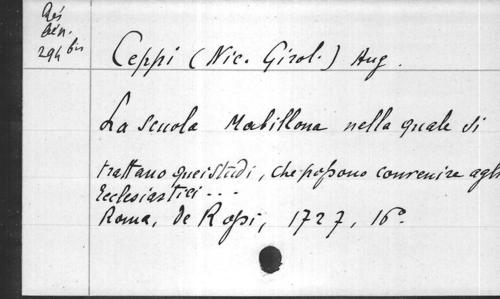 Rés
Bén.
294 bis
Ceppi (Nic. Girol.) Aug.
La scuola Mabillona nella quale si
trattano quei studi, che possono convenire agli
Ecclesiastici...
Roma, De Rossi, 1727, 16°.